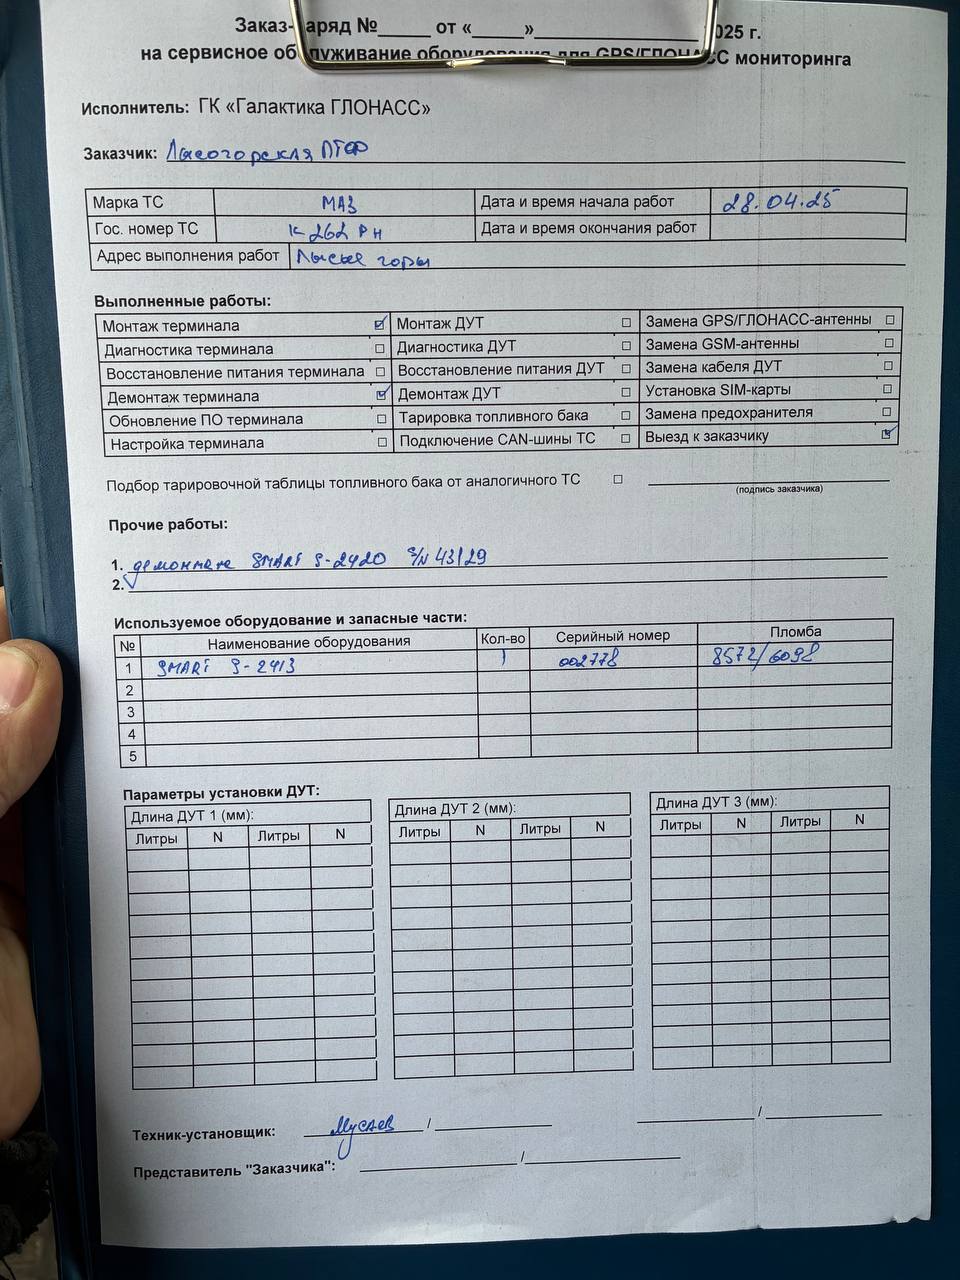 Заказ-наряд №_____ от «_____»________________2025 г.
на сервисное обслуживание оборудования для GPS/ГЛОНАСС мониторинга
Исполнитель: ГК «Галактика ГЛОНАСС»
Заказчик: Лысогорская ПТФ
Марка ТС МАЗ Дата и время начала работ 28.04.25
Гос. номер ТС К 262 РН Дата и время окончания работ
Адрес выполнения работ Лысые горы
Выполненные работы:
Монтаж терминала ☑ Монтаж ДУТ ☐ Замена GPS/ГЛОНАСС-антенны ☐
Диагностика терминала ☐ Диагностика ДУТ ☐ Замена GSM-антенны ☐
Восстановление питания терминала ☐ Восстановление питания ДУТ ☐ Замена кабеля ДУТ ☐
Демонтаж терминала ☑ Демонтаж ДУТ ☐ Установка SIM-карты ☐
Обновление ПО терминала ☐ Тарировка топливного бака ☐ Замена предохранителя ☐
Настройка терминала ☐ Подключение CAN-шины ТС ☐ Выезд к заказчику ☑
Подбор тарировочной таблицы топливного бака от аналогичного ТС ☐
(подпись заказчика)
Прочие работы:
1. демонтаж SMART S-2420 S/N 43129
2.
Используемое оборудование и запасные части:
№ Наименование оборудования Кол-во Серийный номер Пломба
1 SMART S-2413 1 002778 8572/6098
2
3
4
5
Параметры установки ДУТ:
Длина ДУТ 1 (мм): Длина ДУТ 2 (мм): Длина ДУТ 3 (мм):
Литры N Литры N Литры N Литры N Литры N Литры N
Техник-установщик: Мусаев / /
Представитель "Заказчика": /